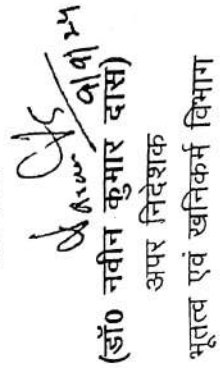 9/9/24
(डॉ० नवीन कुमार दास)
अपर निदेशक
भूतत्व एवं खनिकर्म विभाग